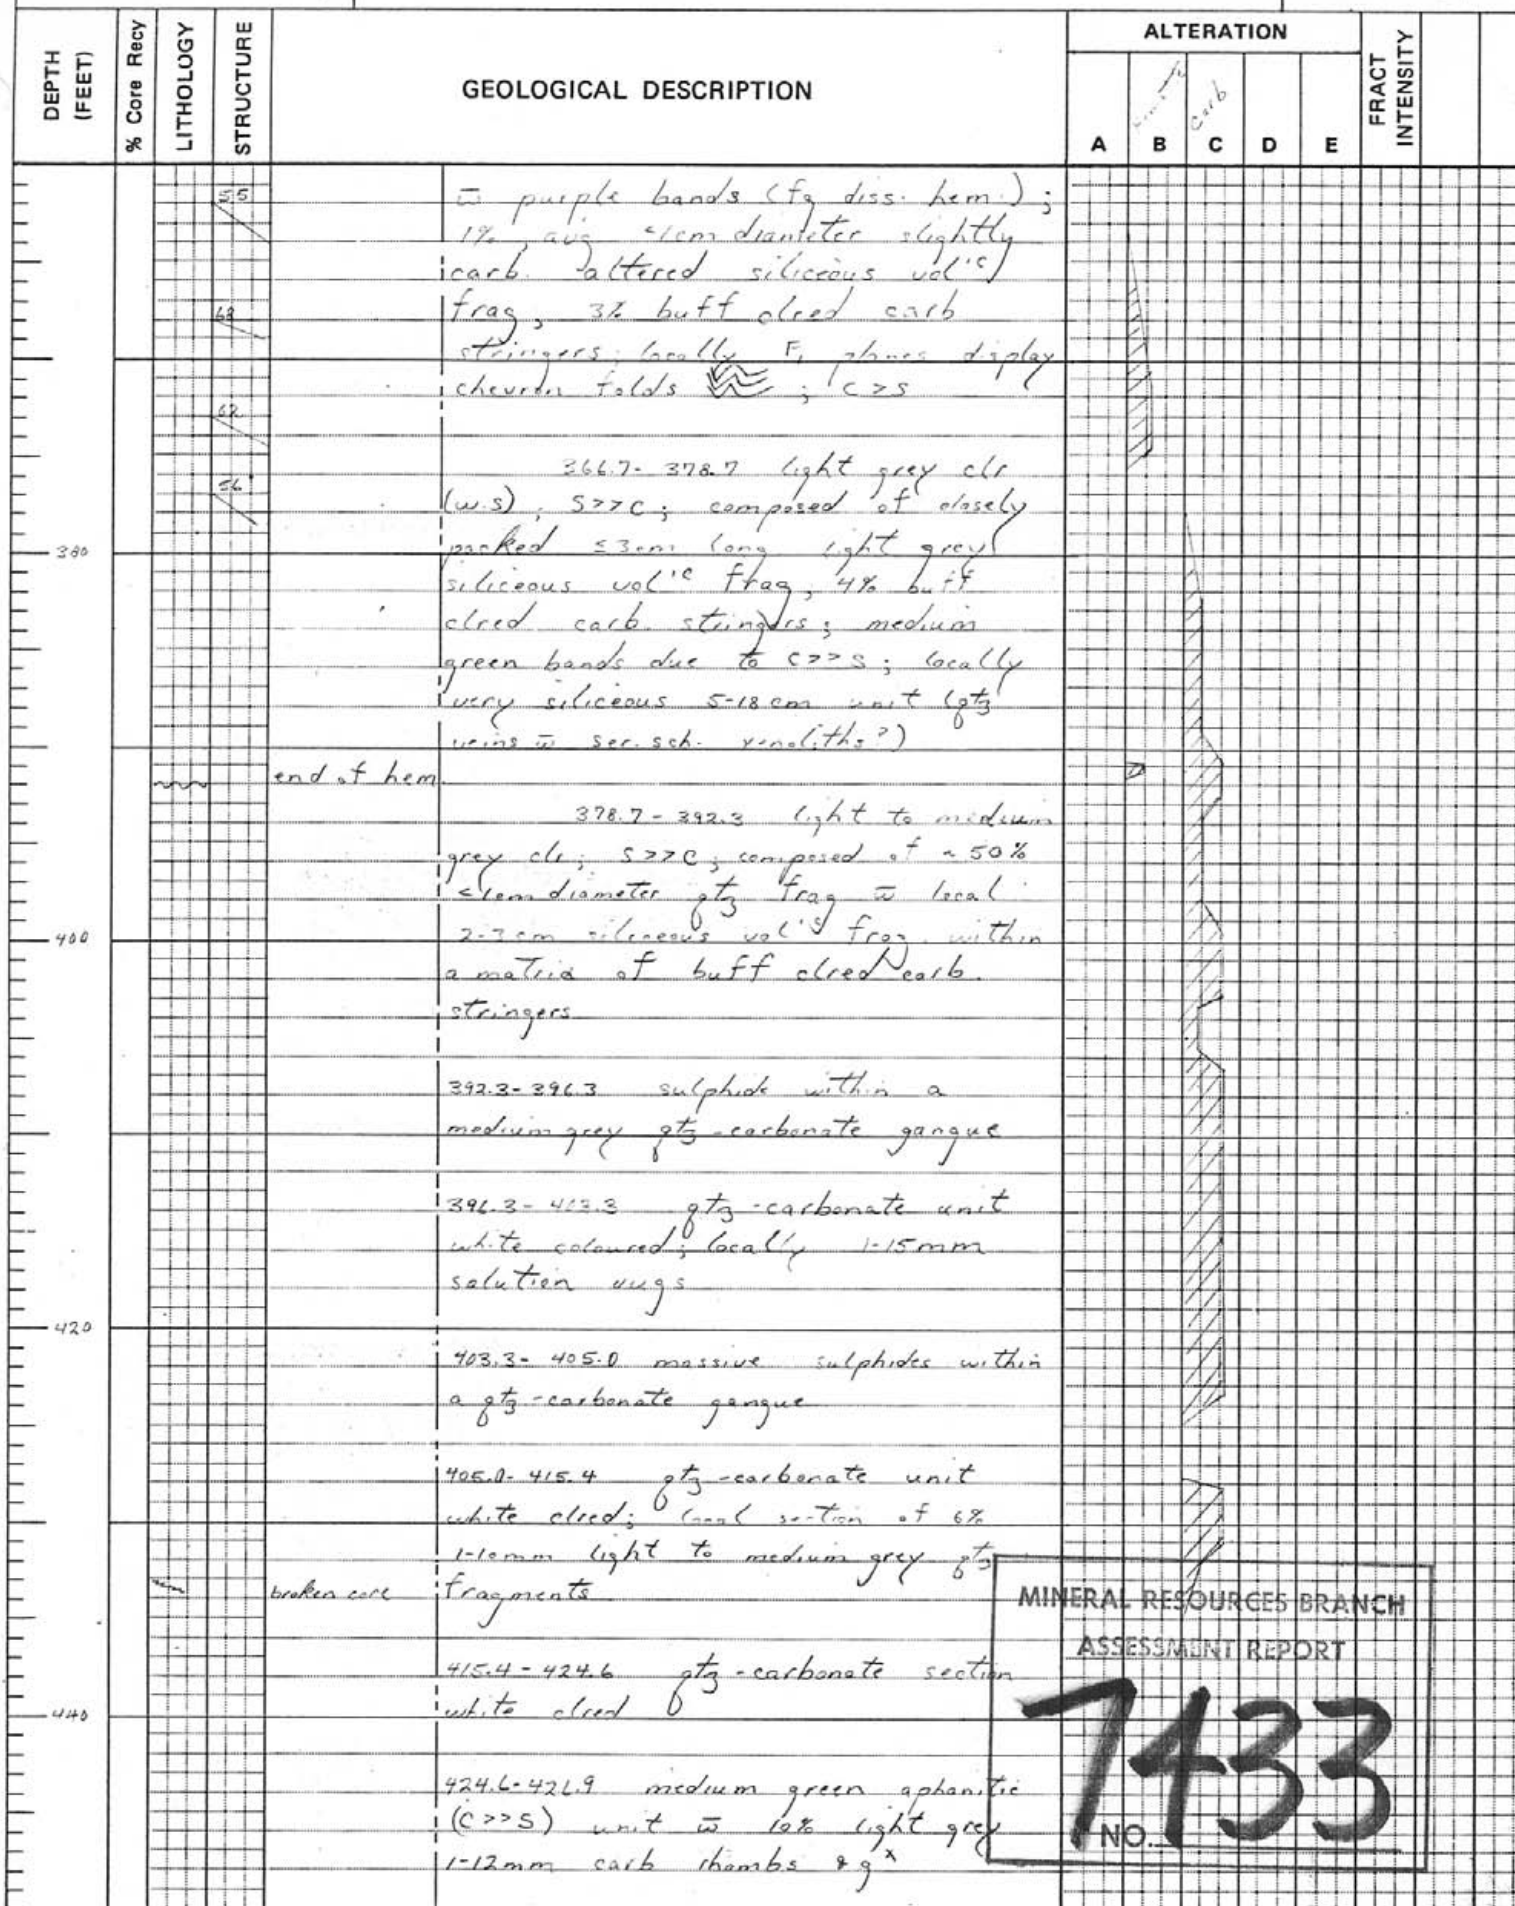 DEPTH (FEET)
% Core Recy
LITHOLOGY
STRUCTURE
GEOLOGICAL DESCRIPTION
ALTERATION
A B C D E
carb
FRACT INTENSITY
55
w̄ purple bands (fg diss. hem.);
1%, avg <1cm diameter slightly
carb. altered siliceous vol'c
frag, 3% buff clred carb
stringers; locally F, planes display
chevron folds ; C>S
68
62
56
366.7-378.7 light grey clr
(w.s), S>>C; composed of closely
packed ≤3cm long light grey
siliceous vol'c frag, 4% buff
clred carb. stringers; medium
green bands due to C>>S; locally
very siliceous 5-18 cm unit (qtz
veins w̄ ser. sch. xenoliths?)
380
end of hem.
378.7-392.3 light to medium
grey clr; S>>C; composed of ~50%
≤1cm diameter qtz frag w̄ local
2-3cm siliceous vol'c frag. within
a matrix of buff clred carb.
stringers
400
392.3-396.3 sulphide within a
medium grey qtz-carbonate gangue
396.3-403.3 qtz-carbonate unit
white coloured; locally 1-15mm
solution vugs
420
403.3-405.0 massive sulphides within
a qtz-carbonate gangue
405.0-415.4 qtz-carbonate unit
white clred; local section of 6%
1-10mm light to medium grey qtz
broken core
fragments
415.4-424.6 qtz-carbonate section
white clred
440
424.6-426.9 medium green aphanitic
(C>>S) unit w̄ 10% light grey
1-12mm carb rhombs & gx
MINERAL RESOURCES BRANCH
ASSESSMENT REPORT
7433
NO.